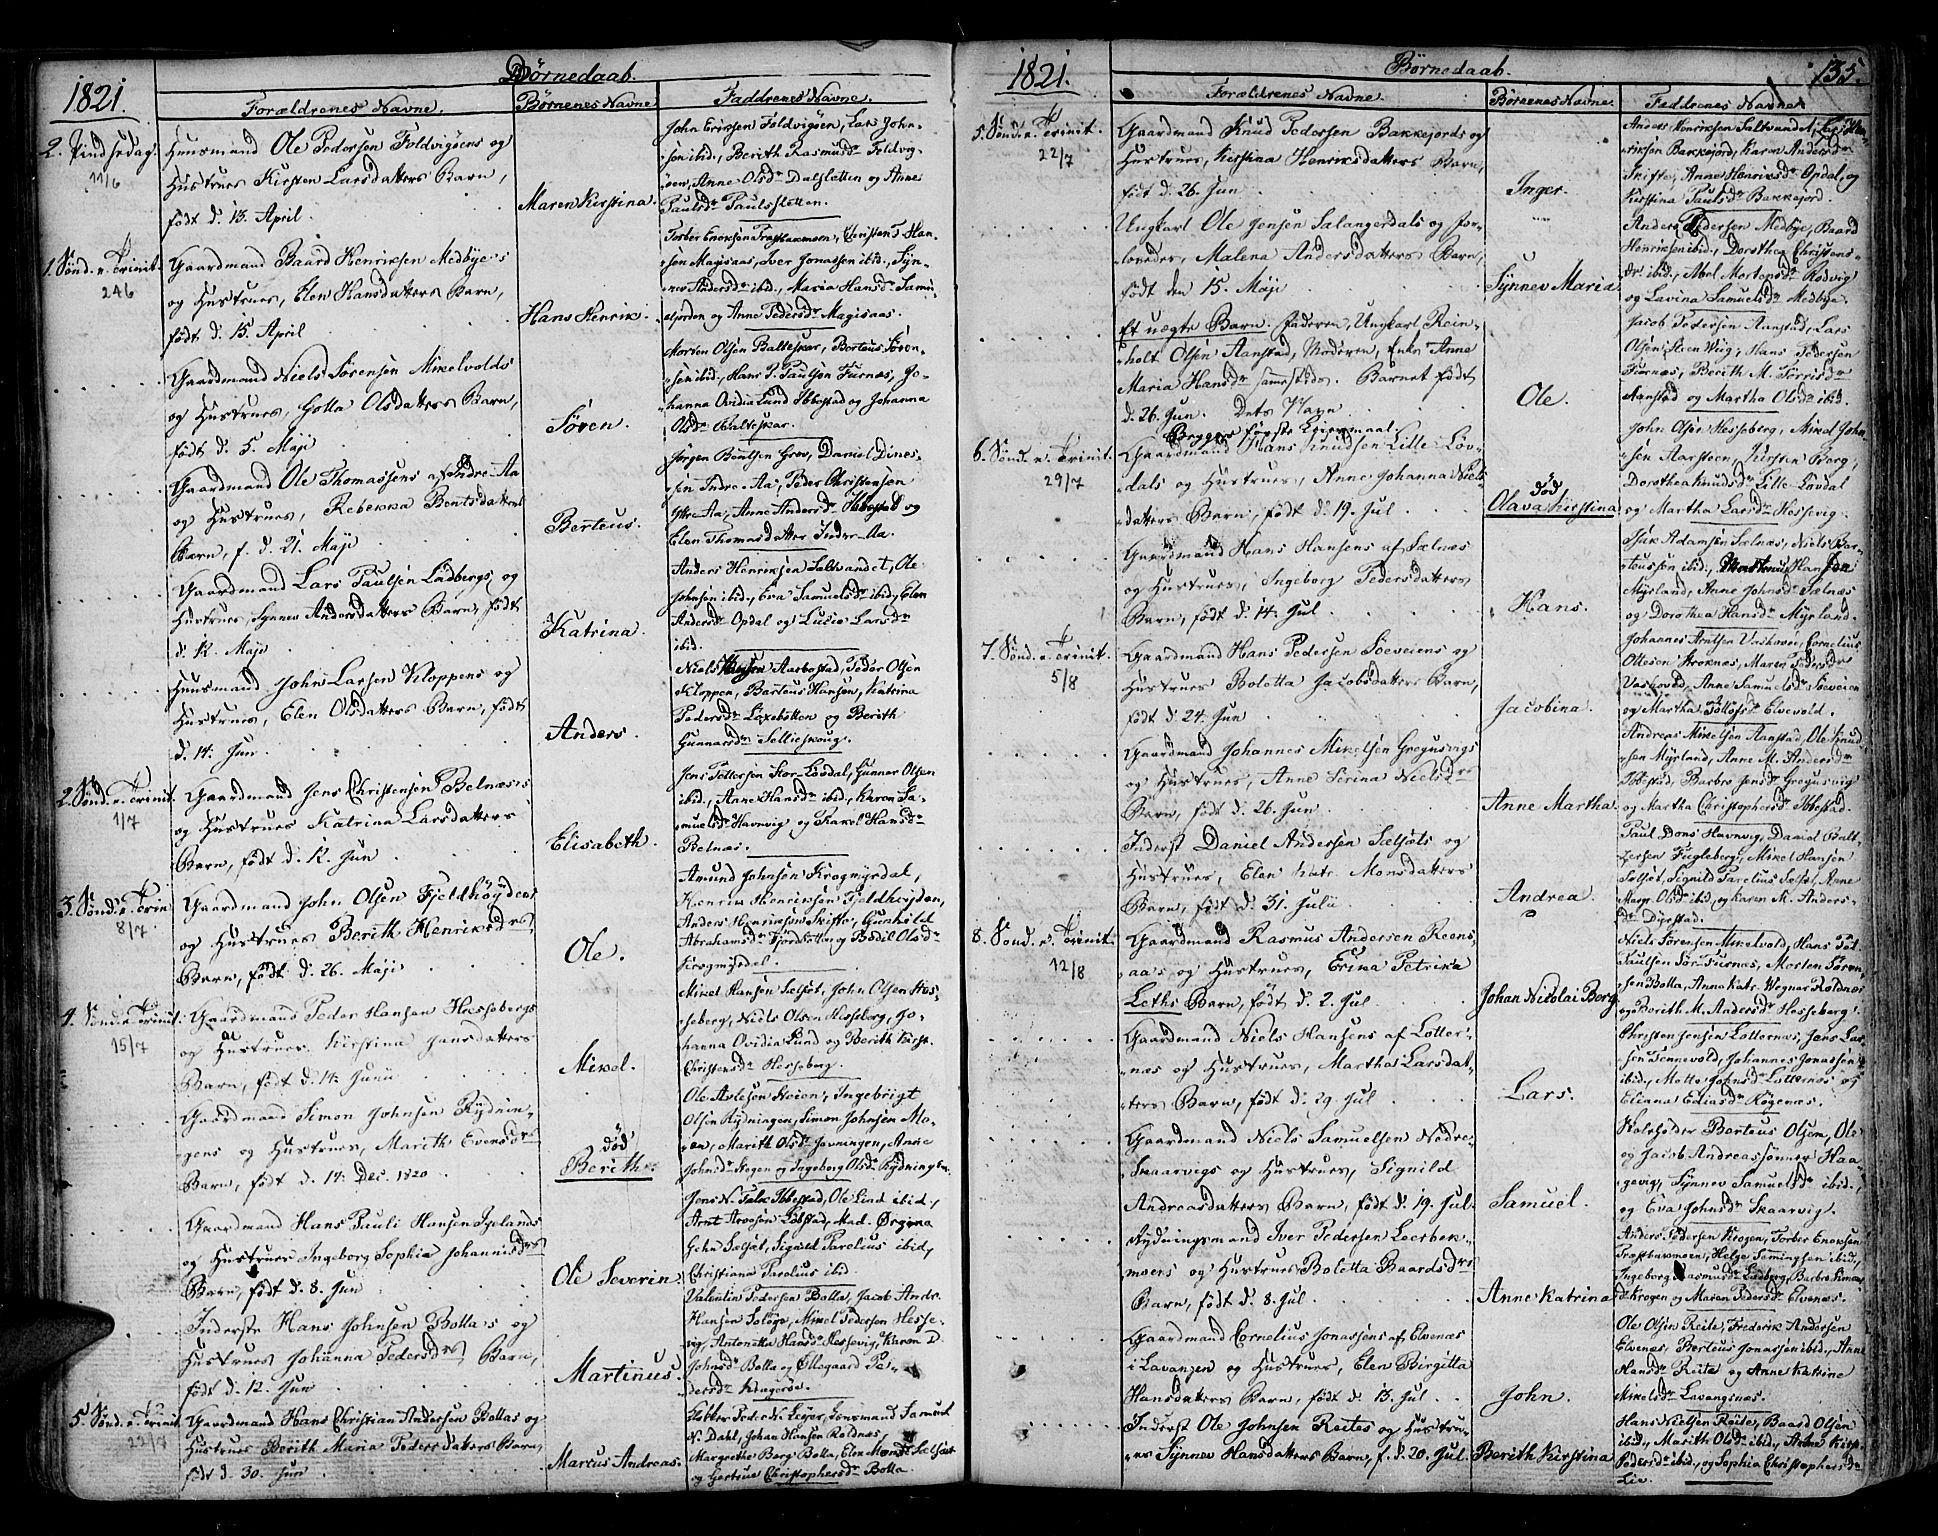 1821.
Børnedaab.
Forældrenes Navne.
Børnenes Navne
Faddrenes Navne.
2. Pindsedag
11/6
Huusmand Ole Pedersen Foldvigøens og
Hustrues Kirsten Larsdatters Barn,
født d. 13. April.
Maren Kirstina.
John Ericsen Foldvigøen, Lars John-
sen ibid., Berith Rasmusdr Foldvig-
øen, Anne Olsdr Dalsletten og Anne
Paulsdr Paulsletten.
1. Sønd. e. Trinit.
24/6
Gaardmand Baard Henriksen Medbye's
og Hustrues, Elen Hansdatters Barn,
født d. 15. April
Hans Henrik.
Torber Enoksen Træstakmoen, Christen Han-
sen Magisaas, Iver Jonassen ibid., Syn-
nev Andersdr ibid., Maria Hansdr Sami-
eljorden og Anne Pedersdr Magisaas.
Gaardmand Niels Sørensen Mikelvolds
og Hustrues, Golla Olsdatters Barn,
født d. 5. Maji
Søren.
Morten Olsen Balteskar, Berteus Søren-
sen ibid., Hans P. Paulsen Furnæs, Jo-
hanna Ovidia Lund Ibbestad og Johanna
Olsdr Balteskar.
Gaardmand Ole Thomassens af Indre-Aa
og Hustrues, Rebekka Bentsdatters
Barn, f. d. 21. Maji
Berteus.
Jørgen Bentsen Grov, Daniel Dines-
sen Indre-Aa, Peder Christensen
Ytre-Aa, Anne Andersdr Ibbestad og
Elen Thomasdatter Indre-Aa.
Gaardmand Lars Paulsen Ladbergs og
Hustrues, Synnev Andersdatters Barn, født
d. 12. Maji
Katrina.
Anders Henriksen Saltvandet, Ole
Johnsen ibid., Eva Samuelsdr ibid., Elen
Andersdr Opdal og Lucie Larsdr
ibid.
Huusmand John Larsen Kloppens og
Hustrues, Elen Olsdatters Barn, født
d. 14. Jun.
Anders.
Niels Aarbostad, Peder Olsen
Kloppen, Barteus Hansen, Katrina
Pedersdr Laxebotten og Berith
Gunnarsdr Sellieskoug.
2. Sønd. e. Trinit.
1/7
Gaardmand Jens Christensen Belnæs's
og Hustrues Katrina Larsdatters
Barn, født d. 12. Jun
Elisabeth.
Jens Pettersen Stor-Løvdal, Gunner Olsen
ibid., Anne Hansdr ibid., Karen Sa-
muelsdr Havnvig og Rakel Hansdr
Belnæs.
3. Sønd. e. Trin
8/7.
Gaardmand John Olsen Fjeldhøydens
og Hustrues Berith Henriksdrs
Barn, født d. 26. Maji
Ole.
Amund Johnsen Krogmyrdal,
Henrik Henriksen Fjeldhøyden,
Anders Henriksen Skifte, Gunhild
Abrahamsdr Fjordbotten og Bodil Olsdr
Krogmyrdal.
4. Sønd. e. Trinit.
15/7
Gaardmans Peder Hansen Hessebergs
og Hustrues Kirstina Jansdatters
Barn, født d. 14. Junii
Mikel.
Mikel Hansen Sælsæt, John Olsen Hes-
seberg, Niels Olsen Hesseberg, Jo-
hanna Ovidia Lund og Berith Kirst.
Christensdr Hesseberg.
Gaardmand Simon Johnsen Rydnin-
gens og Hustrues, Marith Evensdrs
Barn, født d. 14. Dec. 1820
død
Berith.
Ole Avlesen Steien, Ingebrigt
Olsen Rydningen, Simon Johnsen Mo-
en, Marith Olsdr Jovningen, Anne
Johnsdr Krogen og Ingeborg Olsdr Rydningen.
Gaardmand Hans Pauli Hansen Igelands
og Hustrues Ingeborg Sophia Johannisdrs
Barn, født d. 8. Jun
Ole Severin.
Jens N. Falk Ibbestad, Ole Lind ibid.,
Arnt Arnesen Løbstad, Mad. Ørgina
Gehn Sælsæt, Sigvald Parelius ibid,
Christiana Parelius ibid.
Inderste Hans Johnsen Bolla's og
Hustrues Johanna Pedersdrs Barn,
født d. 12. Jun
Martinus.
Valentin Pedersen Bolla, Jacob Andr.
Hansen Soløge, Mikel Pedersen Hesse-
vig, Antonetta Hansdr Hessevig, Karen D.
Johnsdr Bolla og Ollegaard Pe-
dersdr Krageröe.
5. Sønd. e. Trinit.
22/7
Gaardmand Hans Christian Andersen Bollas og
Hustrues Berith Maria Peders datters Barn,
født d. 30. Jun
Marcus Andreas.
Klokker Peder N. Leyer, Lensmand Samuel
N. Dahl, Johan Hansen Roldnæs,
Margrethe Berg Bolla, Elen Monsdr Sælsæt
og Gertrue Christophersdr Bolla
1821.
Børnedaab.
135.
Forældrenes Navne.
Børnenes Navne.
Faddrenes Navne
5. Sønd. e. Trinit.
22/7
Gaardmand Knud Pedersen Bakkejords og
Hustrues, Kirstina Henriksdatters Barn,
født d. 26. Jun
Inger.
Anders Henriksen Saltvandet, Lars Hen-
riksen Bakkejord, Karen Andersdr
Skifte, Anne Henriksdr Opdal, og
Kirstina Paulsdr Bakkejord.
Ungkarl Ole Jensen Salangerdals og For-
lovedes, Malena Andersdatters Barn,
født den 15. Maji
Synnev Maria
Anders Pedersen Medbye, Baard
Henriksen ibid., Dorothea Christens-
dr ibid., Abel Mortensdr Rodvig
og Lavina Samuelsdr Medbye.
Et uægte Barn. Faderen, Ungkarl Rein-
holt Olsen Aanstad, Moderen, Enke Anne
Maria Hansdr sammesteds. Barnet født
d. 26. Jun. Dets Navn
Begges første Leiermaal.
Ole.
Jacob Pedersen Aanstad, Lars
Olsen Steen Wiig, Hans Pedersen
Furnæs, Berith M. Torrisdr
Aanstad og Martha Olsdr ibid.
6. Sønd. e. Trinit.
29/7
Gaardmand Hans Knudsen Lille-Løv-
dals og Hustrues, Anne Johanna Niels-
datters Barn, født d. 19. Jul
død
Olava Kirstina
John Olsen Hesseberg, Mikel John-
sen Aarsteen, Kirsten Berg,
Dorothea Knudsdr Lille-Løvdal
og Martha Larsdr Hessevig.
Gaardmand Hans Hansens af Sælnæs
og Hustrues, Ingeborg Pedersdatters
Barn, født d. 14. Jul
Hans.
Isak Adamsen Sælnæs, Niels Bar-
teussen ibid., Hansen
Myrland, Anne Johnsdr Sælnæs
og Dorothea Hansdr Myrland.
7. Sønd. e. Trinit.
5/8
Gaardmand Hans Pedersen Soeveiens og
Hustrues Boletta Jacobsdatters Barn,
født d. 24. Jun
Jacobina.
Johannes Arntsen Vaskovei, Cornelius
Ottesen Stroknæs, Maren Pedersdr
Vaskoved, Anne Samuelsdr Soeveien
og Martha Tollofsdr Elvevold.
Gaardmand Johannes Mikelsen Gregusvigs
og Hustrues, Anne Serina Nielsdrs
Barn, født d. 26. Jun
Anne Martha
Andreas Mikelsen Aanstad, Ole Knud-
sen Myrland, Anne M. Andersdr
Ibbestad, Barbro Jensdr Gregusvig
og Martha Christophersdr Ibbestad.
Inderst Daniel Andersen Sælsæts og
Hustrues, Elen Katr. Monsdatters
Barn, født d. 31. Julii
Andrea.
Paul Dons Havnvig, Daniel Balt-
zersen Fugleberg, Mikel Hansen
Selset, Signild Parelius Selset, Anne
Marg. Olsdr ibid, og Karen M. Anders-
dr Dyrstad.
8. Sønd. e. Trinit.
12/8
Gaardmand Rasmus Andersen Reens-
aa's og Hustrues, Erina Petrika
Leths Barn, født d. 2. Jul
Johan Nicolai Berg
Niels Sørensen Mikelvold, Hans Pet.
Paulsen Sør-Furnæs, Morten Søren-
sen Bolla, Anna Katr. Wegner Roldnæs
og Berith M. Andersdr Hesseberg.
Gaardmand Niels Hansens af Lotter-
næs og Hustrues, Martha Larsdat-
ters Barn, født d. 29. Jul
Lars.
Christen Jensen Lotternæs, Jens Lar-
sen Tennevold, Johannes Jonassen
ibid., Mette Johnsdr Lotternæs og
Eliana Eliasdr Røgenæs.
Gaardmand Niels Samuelsen Nedre-
Skaarvigs og Hustrues, Signild
Andreasdatters Barn, født d. 19. Jul
Samuel.
Kaleholder Berteus Olsen, Ole
og Jacob Andreassønner Haa-
gevig, Synnev Samuelsdr ibid.,
og Eva Johnsdr Skaarvig.
Rydningsmand Iver Pedersen Leerbek-
moens og Hustrues Boletta Baardsdrs
Barn, født d. 8. Jul
Anne Katrina
Anders Pedersen Krogen, Torber Enoksen
Træstakmoen, Helge Semmingsen ibid,
Ingeborg Rasmusdr Ladberg, Barbro Simens-
dr Krogen og Maren Pedersdr Elvenæs.
Gaardmand Cornelius Jonassens af Elvenæs
i Lavangen og Hustrues, Elen Birgitta
Hansdatters Barn, født d. 13. Jul
John.
Ole Olsen Reite, Frederik Andersen
Elvenæs, Berteus Jonassen ibid., Anne
Hansdr Reite og Anne Katrine
Mikelsdr Lavangsnæs.
Inderst Ole Johnsen Reites og Hustru-
es Synnev Hansdatters Barn, f. d. 20. Jul.
Berith Kirstina
Hans Nielsen Reite, Baard Olsen
ibid., Marith Olsdr ibid., Anne Kirst.
Pedersdr ibid., og Sophia Christophersdr
Lie.